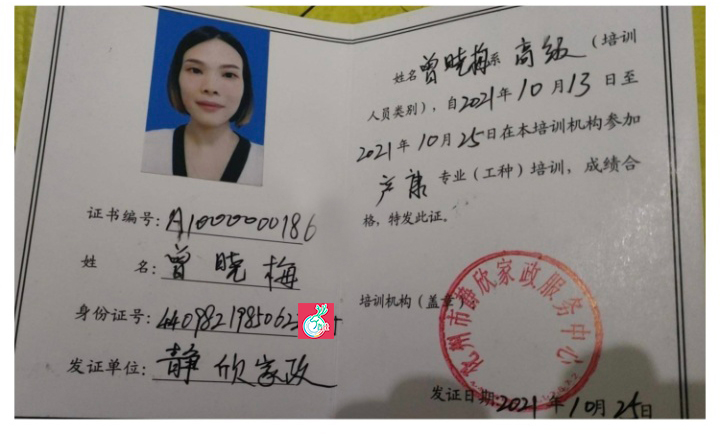 证书编号：A1000000186
姓　　名：曾晓梅
身份证号：4409821985062
发证单位：静欣家政
姓名曾晓梅系高级（培训
人员类别），自2021年10月13日至
2021年10月25日在本培训机构参加
产康专业（工种）培训，成绩合
格，特发此证。
培训机构（盖章）：
州市静欣家政服务中心
发证日期：2021年10月25日